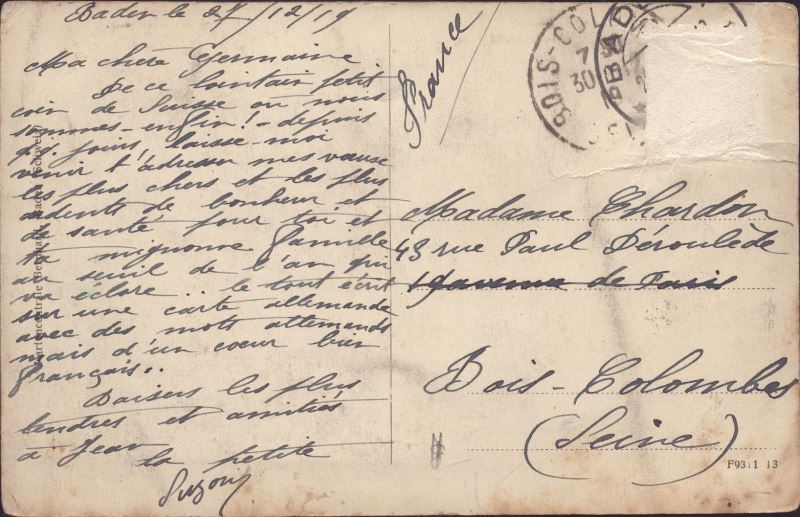 Baden le 27/12/19
Ma chère Germaine
De ce lointain petit
coin de Suisse où nous
sommes - enfin! - depuis
jours, laisse-moi
venir t'adresser mes vœux
les plus chers et les plus
ardents de bonheur et
de santé pour toi et
ta mignonne famille
au seuil de l'an qui
va éclore.. le tout écrit
sur une carte allemande
avec des mots allemands
mais d'un cœur bien
français..
Baisers les plus
tendres et amitiés
à Jean
la petite
Suzon
France
BOIS-COL
7
30
BAD
Madame Chardon
43 rue Paul Déroulède
19 avenue de Paris
Bois-Colombes
(Seine)
F9311 13